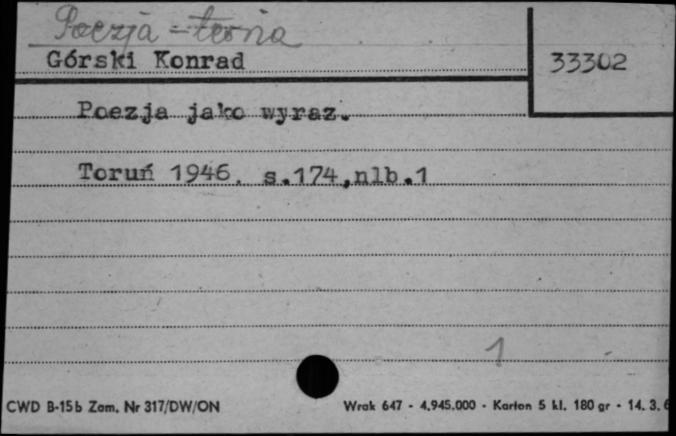 Poezja - teoria
Górski Konrad
33302
Poezja jako wyraz.
Toruń 1946. s.174,nlb.1
1
CWD B-15b Zam. Nr 317/DW/ON
Wrak 647 - 4.945.000 - Karton 5 kl. 180 gr - 14. 3. 6